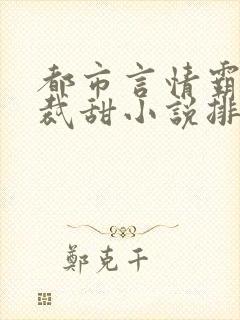 都市言情霸
裁甜小說排
鄭克干